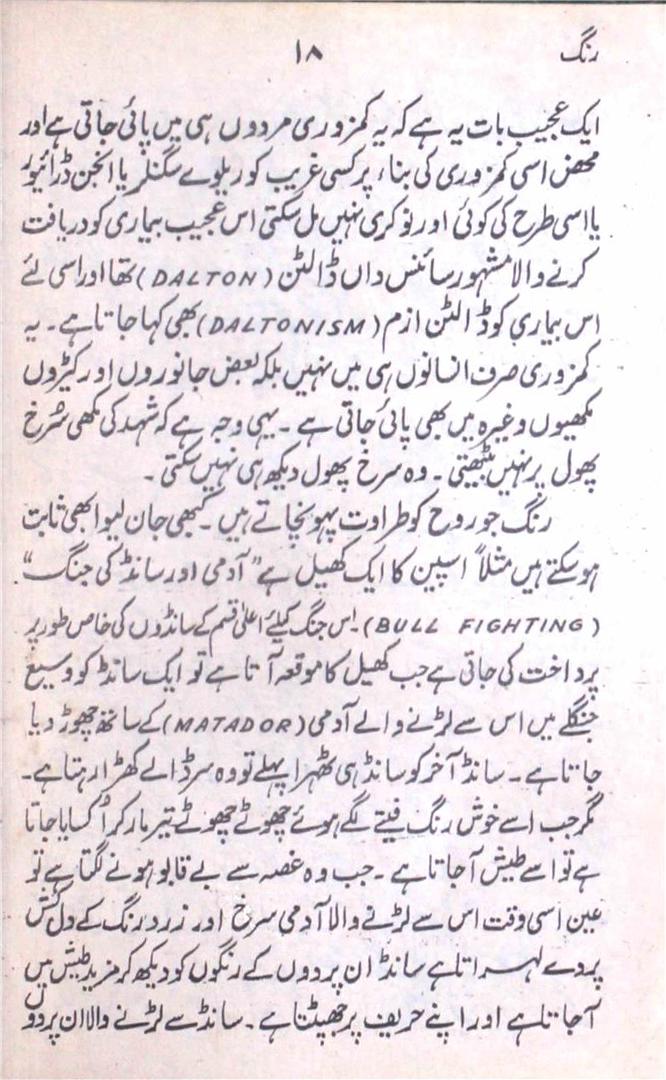 رنگ
۱۸
ایک عجیب بات یہ ہے کہ یہ کمزوری مردوں ہی میں پائی جاتی ہے اور
محض اسی کمزوری کی بناء پر کسی غریب کو ریلوے سگنلر یا انجن ڈرائیور
یا اسی طرح کی کوئی اور نوکری نہیں مل سکتی اس عجیب بیماری کو دریافت
کرنے والا مشہور سائنس داں ڈالٹن (DALTON) تھا اور اسی لئے
اس بیماری کو ڈالٹن ازم (DALTONISM) بھی کہا جاتا ہے۔ یہ
کمزوری صرف انسانوں ہی میں نہیں بلکہ بعض جانوروں اور کیڑوں
مکھیوں وغیرہ میں بھی پائی جاتی ہے۔ یہی وجہ ہے کہ شہد کی مکھی سُرخ
پھول پر نہیں بیٹھتی۔ وہ سرخ پھول دیکھ ہی نہیں سکتی۔
رنگ جو روح کو طراوت پہونچاتے ہیں۔ کبھی جان لیوا بھی ثابت
ہو سکتے ہیں مثلاً اسپین کا ایک کھیل ہے "آدمی اور سانڈ کی جنگ"
(BULL FIGHTING)۔ اس جنگ کیلئے اعلیٰ قسم کے سانڈوں کی خاص طور پر
پرداخت کی جاتی ہے جب کھیل کا موقعہ آتا ہے تو ایک سانڈ کو وسیع
جنگلے میں اس سے لڑنے والے آدمی (MATADOR) کے ساتھ چھوڑ دیا
جاتا ہے۔ سانڈ آخر کو سانڈ ہی ٹھہرا پہلے تو وہ سر ڈالے کھڑا رہتا ہے۔
مگر جب اسے خوش رنگ فیتے لگے ہوئے چھوٹے چھوٹے تیر مار کر اُکسایا جاتا
ہے تو اسے طیش آجاتا ہے۔ جب وہ غصہ سے بے قابو ہونے لگتا ہے تو
عین اسی وقت اس سے لڑنے والا آدمی سرخ اور زرد رنگ کے دل کش
پردے لہراتا ہے سانڈ ان پردوں کے رنگوں کو دیکھ کر مزید طیش میں
آجاتا ہے اور اپنے حریف پر جھپٹتا ہے۔ سانڈ سے لڑنے والا ان پردوں